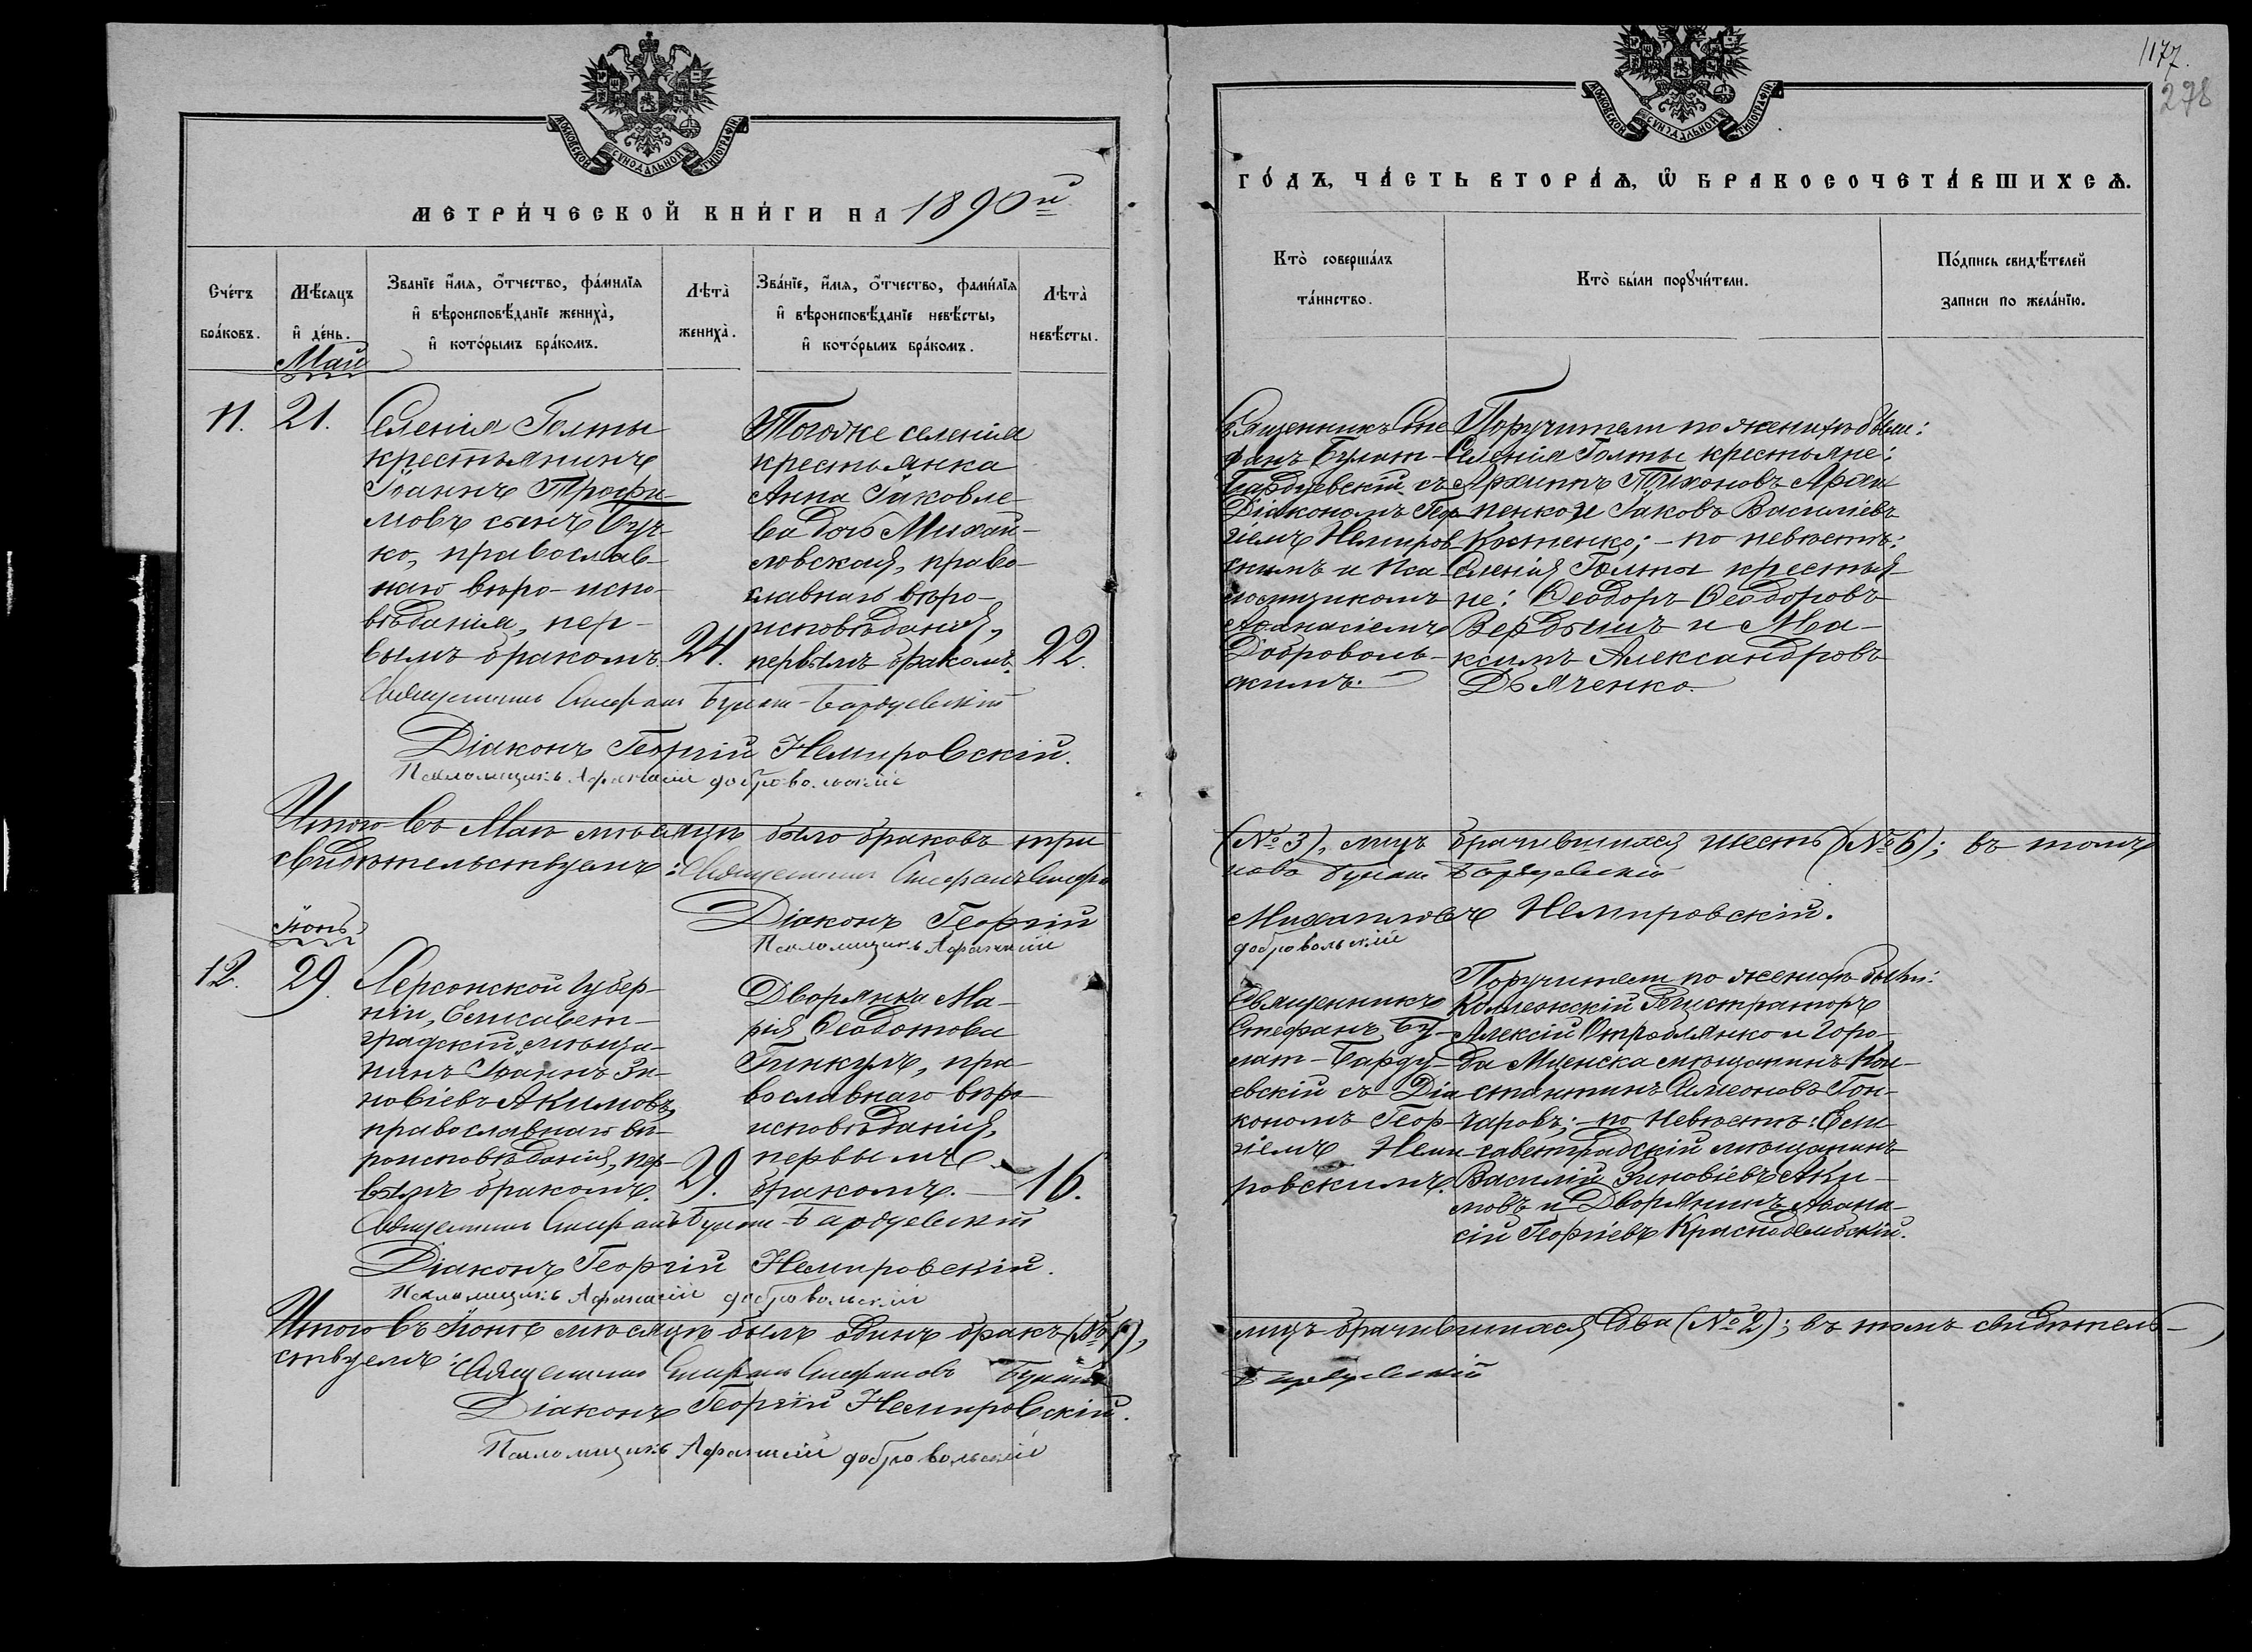 МОСКОВСКОЙ СѴНОДАЛЬНОЙ ТИПОГРАФІИ
МЕТРИ́ЧЕСКОЙ КНИ́ГИ НА 1890й
Сче́тъ бра́ковъ.
Мѣ́сяцъ и҆ де́нь.
Званїе и҆́мѧ, ѻ҆́тчество, фамилїѧ
и҆ вѣроисповѣ́данїе жениха̀,
и҆ кото́рымъ бра́комъ.
Лѣта̀ жениха̀.
Зва́нїе, и҆́мѧ, ѻ҆́тчество, фами́лїѧ
и҆ вѣроисповѣ́данїе невѣ́сты,
и҆ кото́рымъ бра́комъ.
Лѣта̀ невѣ́сты.
Май
11. 21.
Селенія Голты
крестьянинъ
Іоаннъ Трофи-
мовъ сынъ Буч-
ко, православ-
наго вѣро-испо-
вѣданія, пер-
вымъ бракомъ. 24.
Тогоже селенія
крестьянка
Анна Іаковле-
ва дочь Михай-
ловская, право-
славнаго вѣро-
исповѣданія,
первымъ бракомъ. 22.
Священникъ Стефанъ Булат-Бардуевскій
Діаконъ Георгій Немировскій.
Псаломщикъ Афанасій Добровольскій
Итого въ Маѣ мѣсяцѣ было браковъ три
свидѣтельствуемъ: Священникъ Стефанъ Стефа
Діаконъ Георгій
Псаломщикъ Афанасій
Іюнь
12. 29.
Херсонской Губер-
ніи, Елисавет-
градскій мѣща-
нинъ Іоаннъ Зи-
новіевъ Акимовъ,
православнаго вѣ-
роисповѣданія, пер-
вымъ бракомъ. 29.
Дворянка Ма-
рія Ѳеодотова
Гинкулъ, пра-
вославнаго вѣро-
исповѣданія,
первымъ
бракомъ. 16.
Священникъ Стефанъ Булат-Бардуевскій
Діаконъ Георгій Немировскій.
Псаломщикъ Афанасій Добровольскій
Итого въ Іюнѣ мѣсяцѣ былъ одинъ бракъ (№ 1),
ствуемъ: Священникъ Стефанъ Стефановъ Булатъ
Діаконъ Георгій Немировскій.
Псаломщикъ Афанасій Добровольскій
1177.
278
МОСКОВСКОЙ СѴНОДАЛЬНОЙ ТИПОГРАФІИ
ГО́ДЪ, ЧА́СТЬ ВТОРА́Ѧ, Ѽ БРАКОСОЧЕТА́ВШИХСѦ.
Кто̀ соверша́лъ
та́инство.
Кто̀ бы́ли порꙋчи́тели.
По́дпись свидѣ́телей
записи по жела́нїю.
Священникъ Сте-
фанъ Булат-
Бардуевскій съ
Діакономъ Геор-
гіемъ Немиров-
скимъ и Пса-
ломщикомъ
Аѳанасіемъ
Доброволь-
скимъ.
Поручители по женихѣ были:
Селенія Голты крестьяне:
Архиппъ Тихоновъ Архи-
пенко и Іаковъ Василіевъ
Костенко; - по невѣстѣ:
Селенія Голты крестья-
не: Ѳеодоръ Ѳеодоровъ
Вербышъ и Ма-
ксимъ Александровъ
Дьяченко.
(№ 3), лицъ брачившихся шесть (№ 6); въ томъ
новъ Булат Бардуевскій
Михаиловъ Немировскій.
Добровольскій
Священникъ
Стефанъ Бу-
лат-Барду-
евскій съ Діа-
кономъ Геор-
гіемъ Неми-
ровскимъ.
Поручители по женихѣ были:
Коллежскій Регистраторъ
Алексій Отроблянко и горо-
да Мценска мѣщанинъ Кон-
стантинъ Симеоновъ Гон-
чаровъ; - по невѣстѣ: Ели-
саветградскій мѣщанинъ
Василій Зиновіевъ Аки-
мовъ и Дворянинъ Аѳана-
сій Георгіевъ Краснодембскій.
лицъ брачившихся два (№ 2); въ томъ свидѣтель-
Бардуевскій